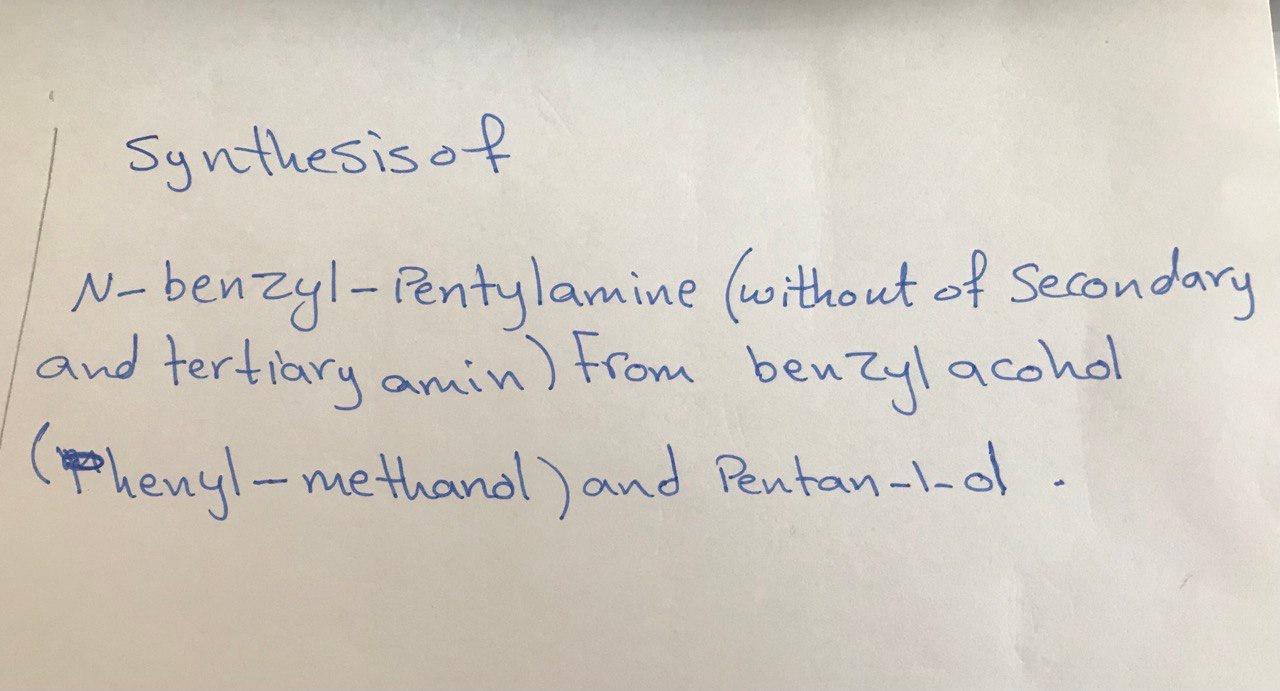 Synthesis of
N-benzyl-Pentylamine (without of Secondary
and tertiary amin) From benzyl acohol
(Phenyl-methanol) and Pentan-1-ol .